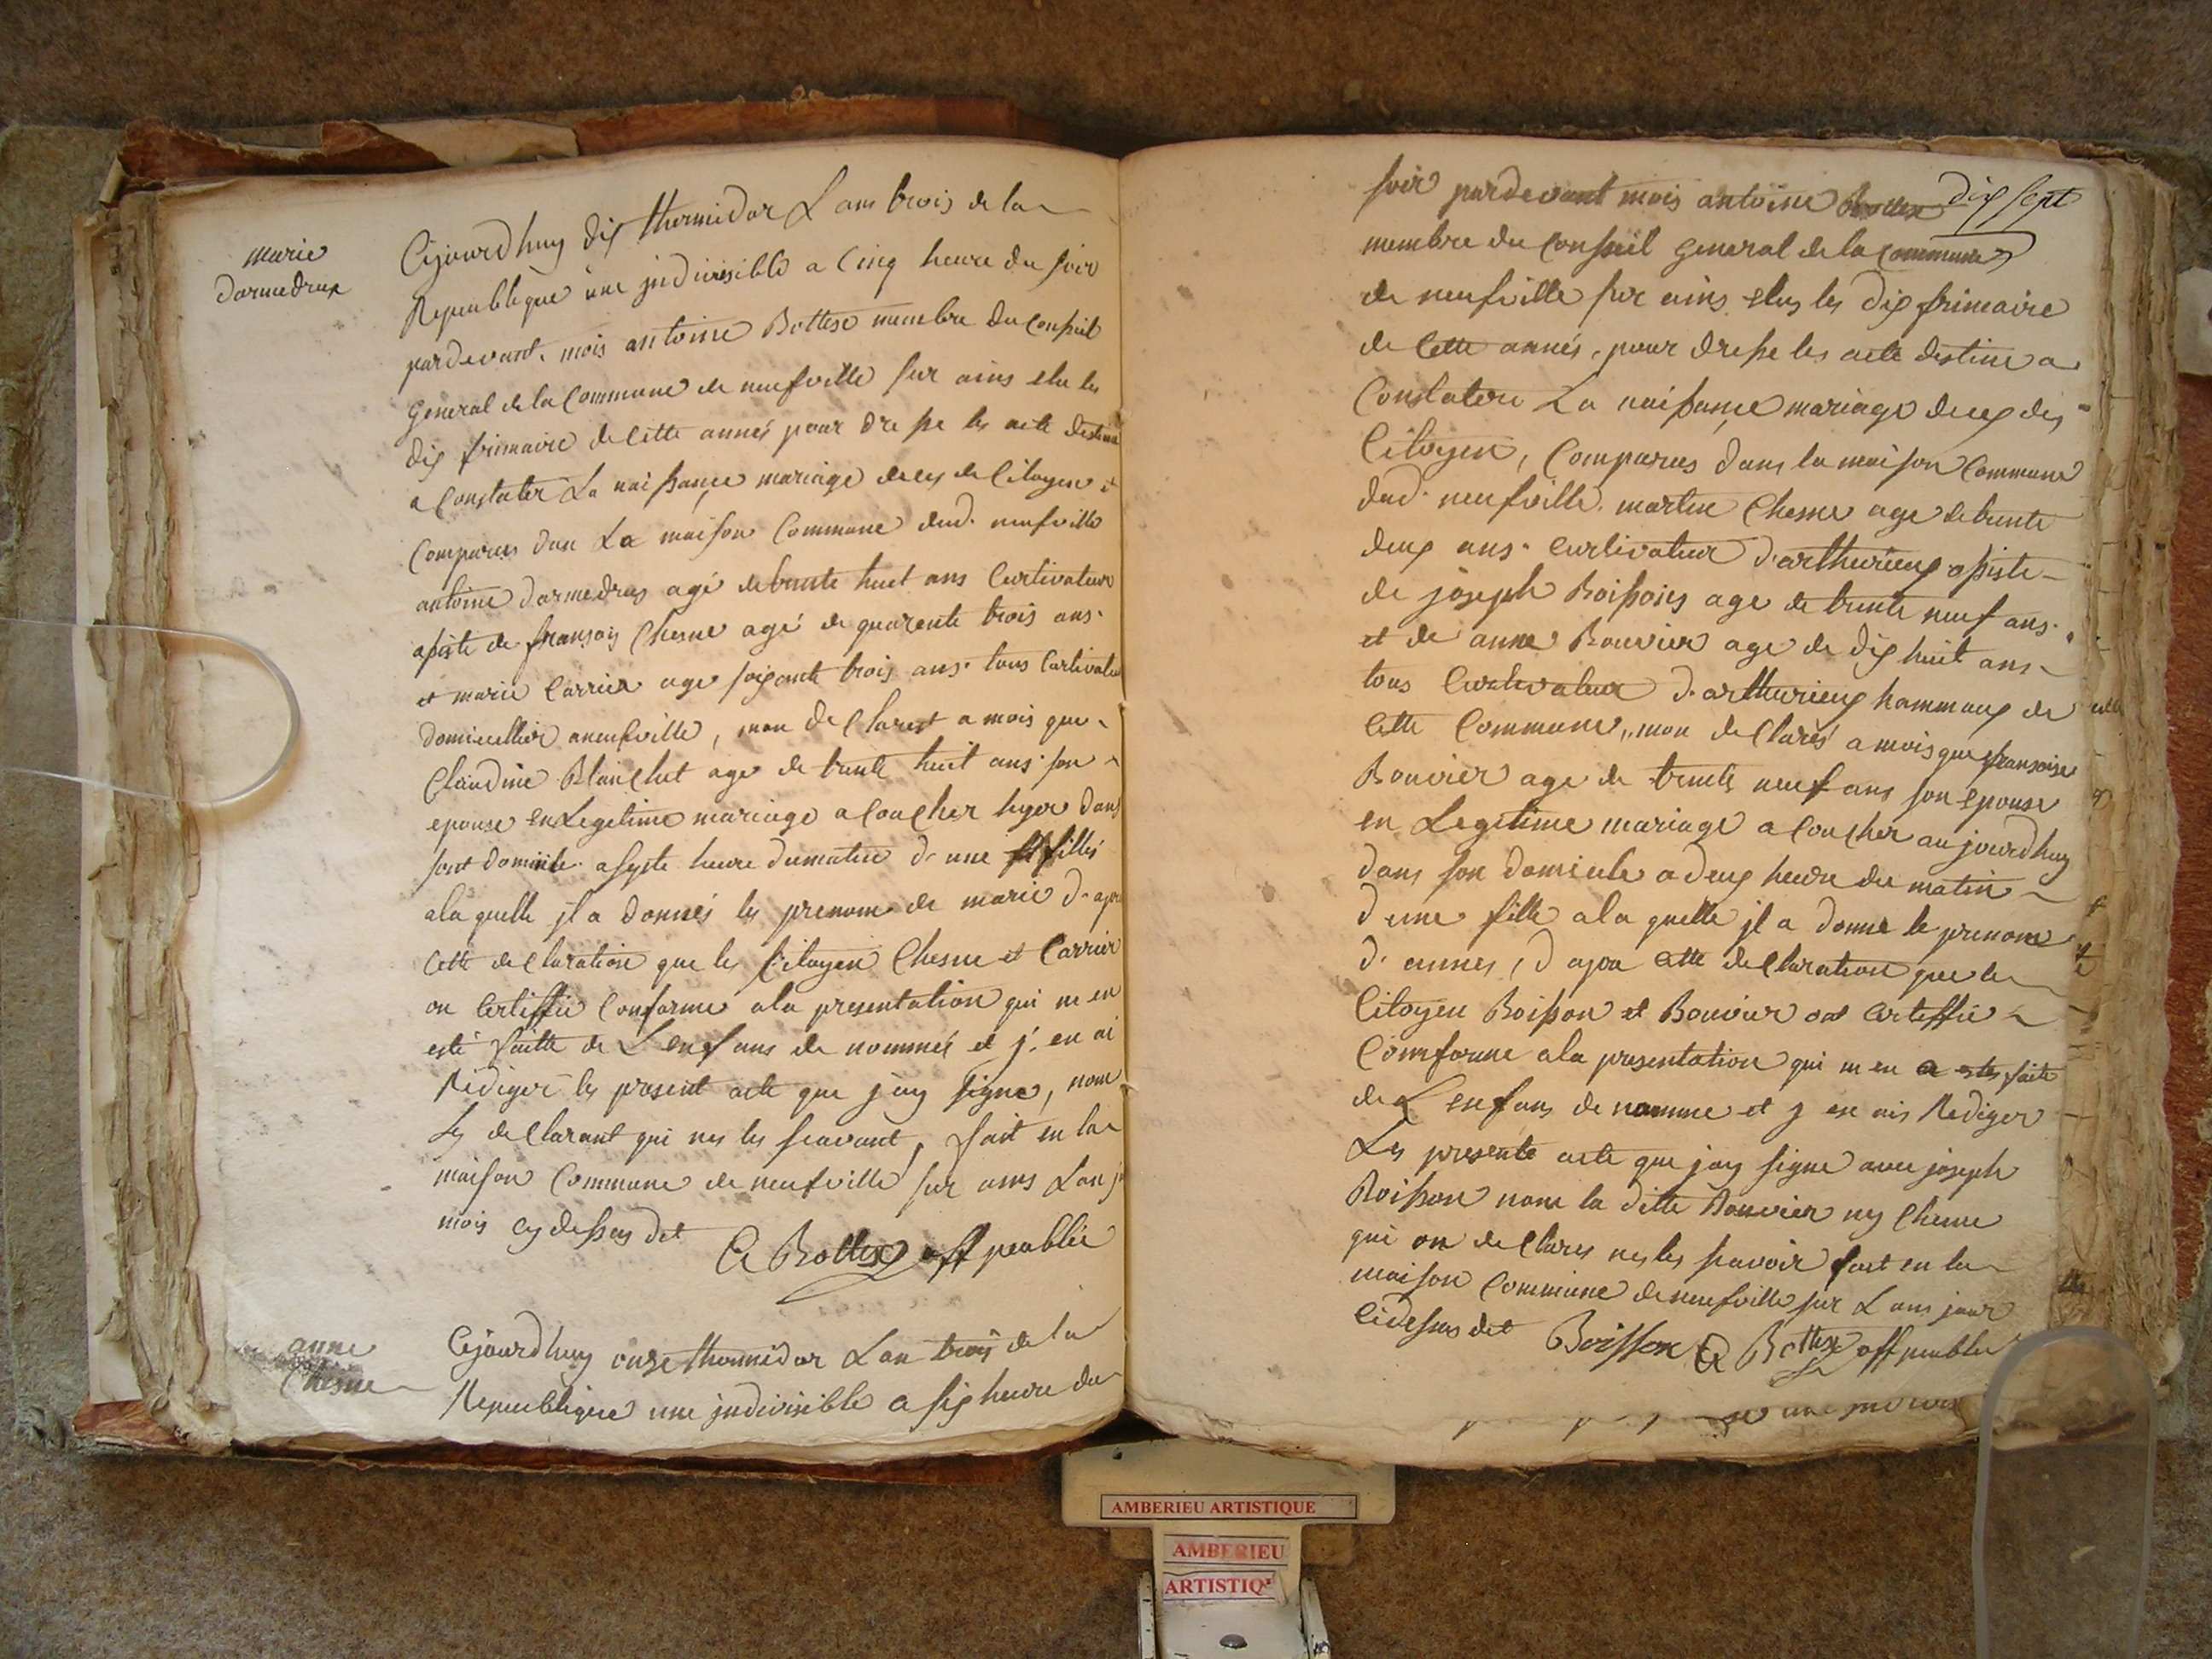 marie
darmedrux
Cejourdhuy dix thermidor L ans trois de la
Republique une jndivisible a Cinq heure du soir
pardevant mois antoine Bottex membre du Conseil
General de la Commune de neufville sur ains elu les
dix frimaire de Cette annés pour dresse les acte destine
a Constater La naissance mariage deces de Citoyen et
Comparus dan La maison Commune dud. neufville
antoine darmedrus agé de trente huit ans Curtivateur
assiste de fransois Chesne agé de quarente trois ans.
et marie Carrier age soixante trois ans. tous Curtivateur
domicillier aneufville, mon de Claret a mois que
Claudine Blanchet age de trente huit ans. son
epouse en Legetime mariage a Coucher hyer dans
sont domicile a septe heure dumatin d. une filles
ala quelle jl a donnés les prenom de marie d. apre
Cette de Claration que les Citoyen Chesne et Carrier
on Certiffie Conforme ala presentation qui m en
esté faitte de L enfans de nommés et j. en ai
Rediger les present acte que j ay signe, nom
Les de Clarant qui nes les scavant, fait en la
maison Commune de neufville sur ains Lan j
mois cy dessus dit
A Bottex off peublie
anne
Chesne
Cejourdhuy onze thermidor Lan trois de la
Republique une jndivisible a six heure du
dix sept
soir pardevant mois antoine Bottex
membre du Conseil General de la Commune
de neufville sur ains elus les dix frimaire
de Cette annés, pour dresse les acte destine a
Constatere La naissance mariage deces des
Citoyen, Comparus dans la maison Commune
dud. neufville. martin Chesne age de trente
deux ans. Curtivateur d. arthurieux assiste
de joseph Boissoies age de trente neuf ans.
et de anne Bouvier age de dix huit ans
tous Curtivateur d. arthurieux hammaux de
Cette Commune,, mon de Clarés a mois que fransoise
Bouvier age de trente neuf ans son epouse
en Legetime mariage a Coucher aujourdhuy
dans son domicile a deux heure du matin
d une fille ala quelle jl a donne le prenom
d. annes, d apre cette de Claration que le
Citoyen Boisson et Bouvier ont Certeffie
Comforme ala presentation qui m en a estes faite
de L enfans de nomme et j en ais Rediger
Les presente acte que j ay signe avec joseph
Boisson nom la ditte Bouvier ny Chesne
qui on de Clares nes les scavoir fait en la
maison Commune de neufville sur L ans jour
Cidessus dit
Boisson A Bottex off peublie
AMBERIEU ARTISTIQUE
AMBERIEU
ARTISTIQ